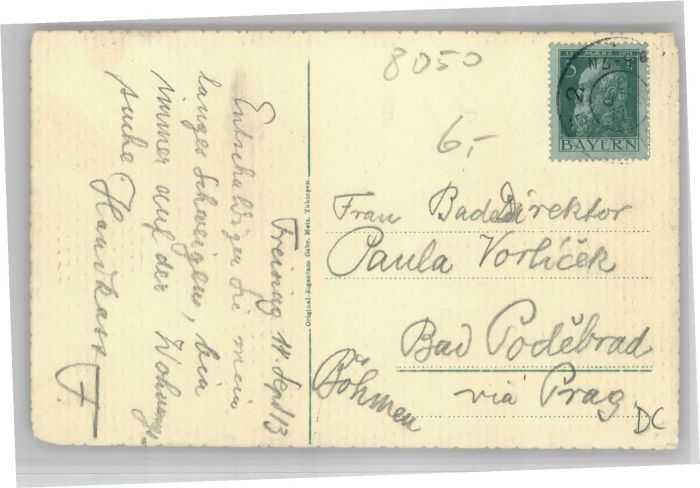 Freising 14. Sept 13
Entschuldigen Sie mein
langes Schweigen, bin
immer auf der Wohnungs-
suche
8050
6,-
12. MÄRZ 1911
5
BAYERN
Frau Badedirektor
Paula Vorlíček
Bad Poděbrad
via Prag
Böhmen
DC
Original-Eigentum Gebr. Metz, Tübingen.